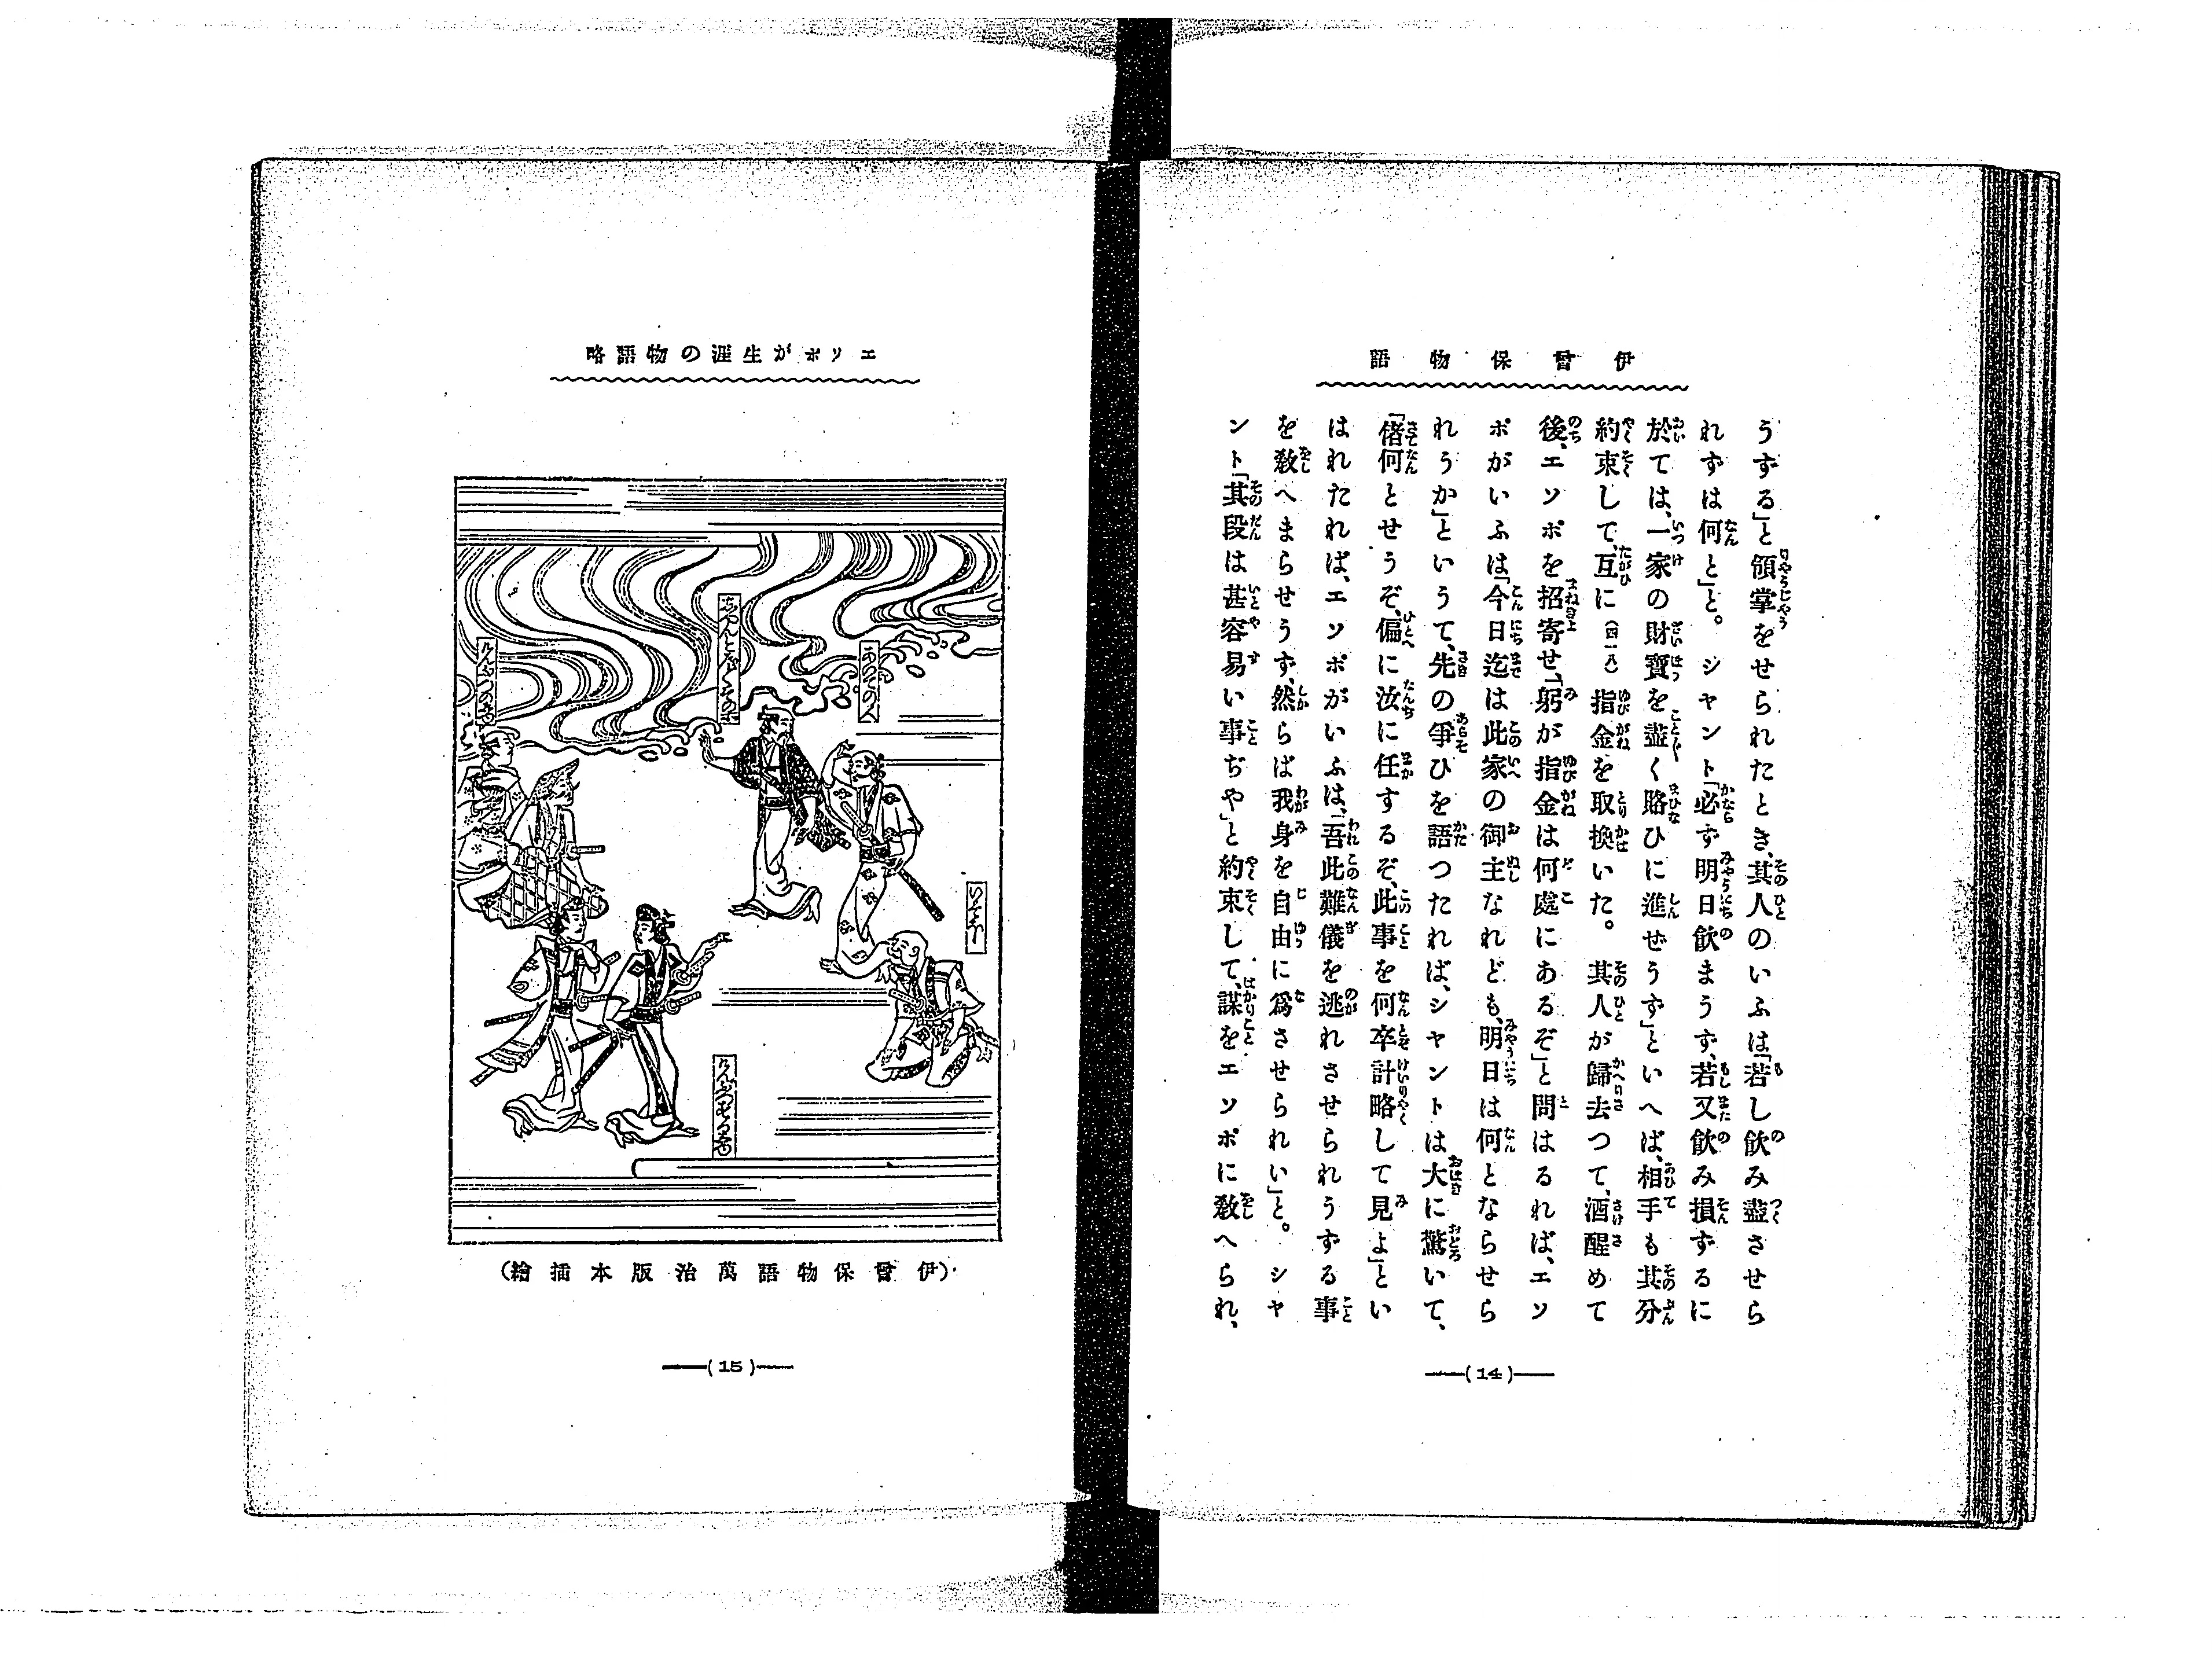 伊曾保物語
うずる」と領掌をせられたとき、其人のいふは「若し飮み盡させら
れずは何と」と。シャント「必ず明日飮まうず、若又飮み損ずるに
於ては、一家の財寶を盡く賂ひに進ぜうず」といへば、相手も其分
約束して、互に（四一八）指金を取換いた。其人が歸去つて、酒醒めて
後、エソポを招寄せ、「躬が指金は何處にあるぞ」と問はるれば、エソ
ポがいふは「今日迄は此家の御主なれども、明日は何とならせら
れうか」というて、先の爭ひを語つたれば、シャントは大に驚いて、
「偖何とせうぞ、偏に汝に任するぞ、此事を何卒計略して見よ」とい
はれたれば、エソポがいふは、「吾此難儀を逃れさせられうずる事
を敎へまらせうず、然らば我身を自由に爲させられい」と。シャ
ント「其段は甚容易い事ぢや」と約束して、謀をエソポに敎へられ、
(14)
エソポが生涯の物語略
しやんとがくしや
あひての人
いそほ
けんぶつの者
けんぶつする者
(伊曾保物語萬治版本插繪)
(15)